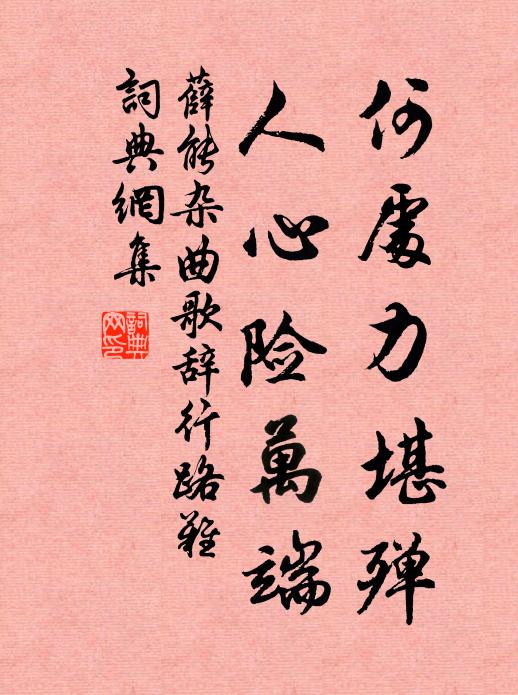 何處力堪殫
人心险萬端
薛能杂曲歌辞行路難
詞典網集
詞典網印